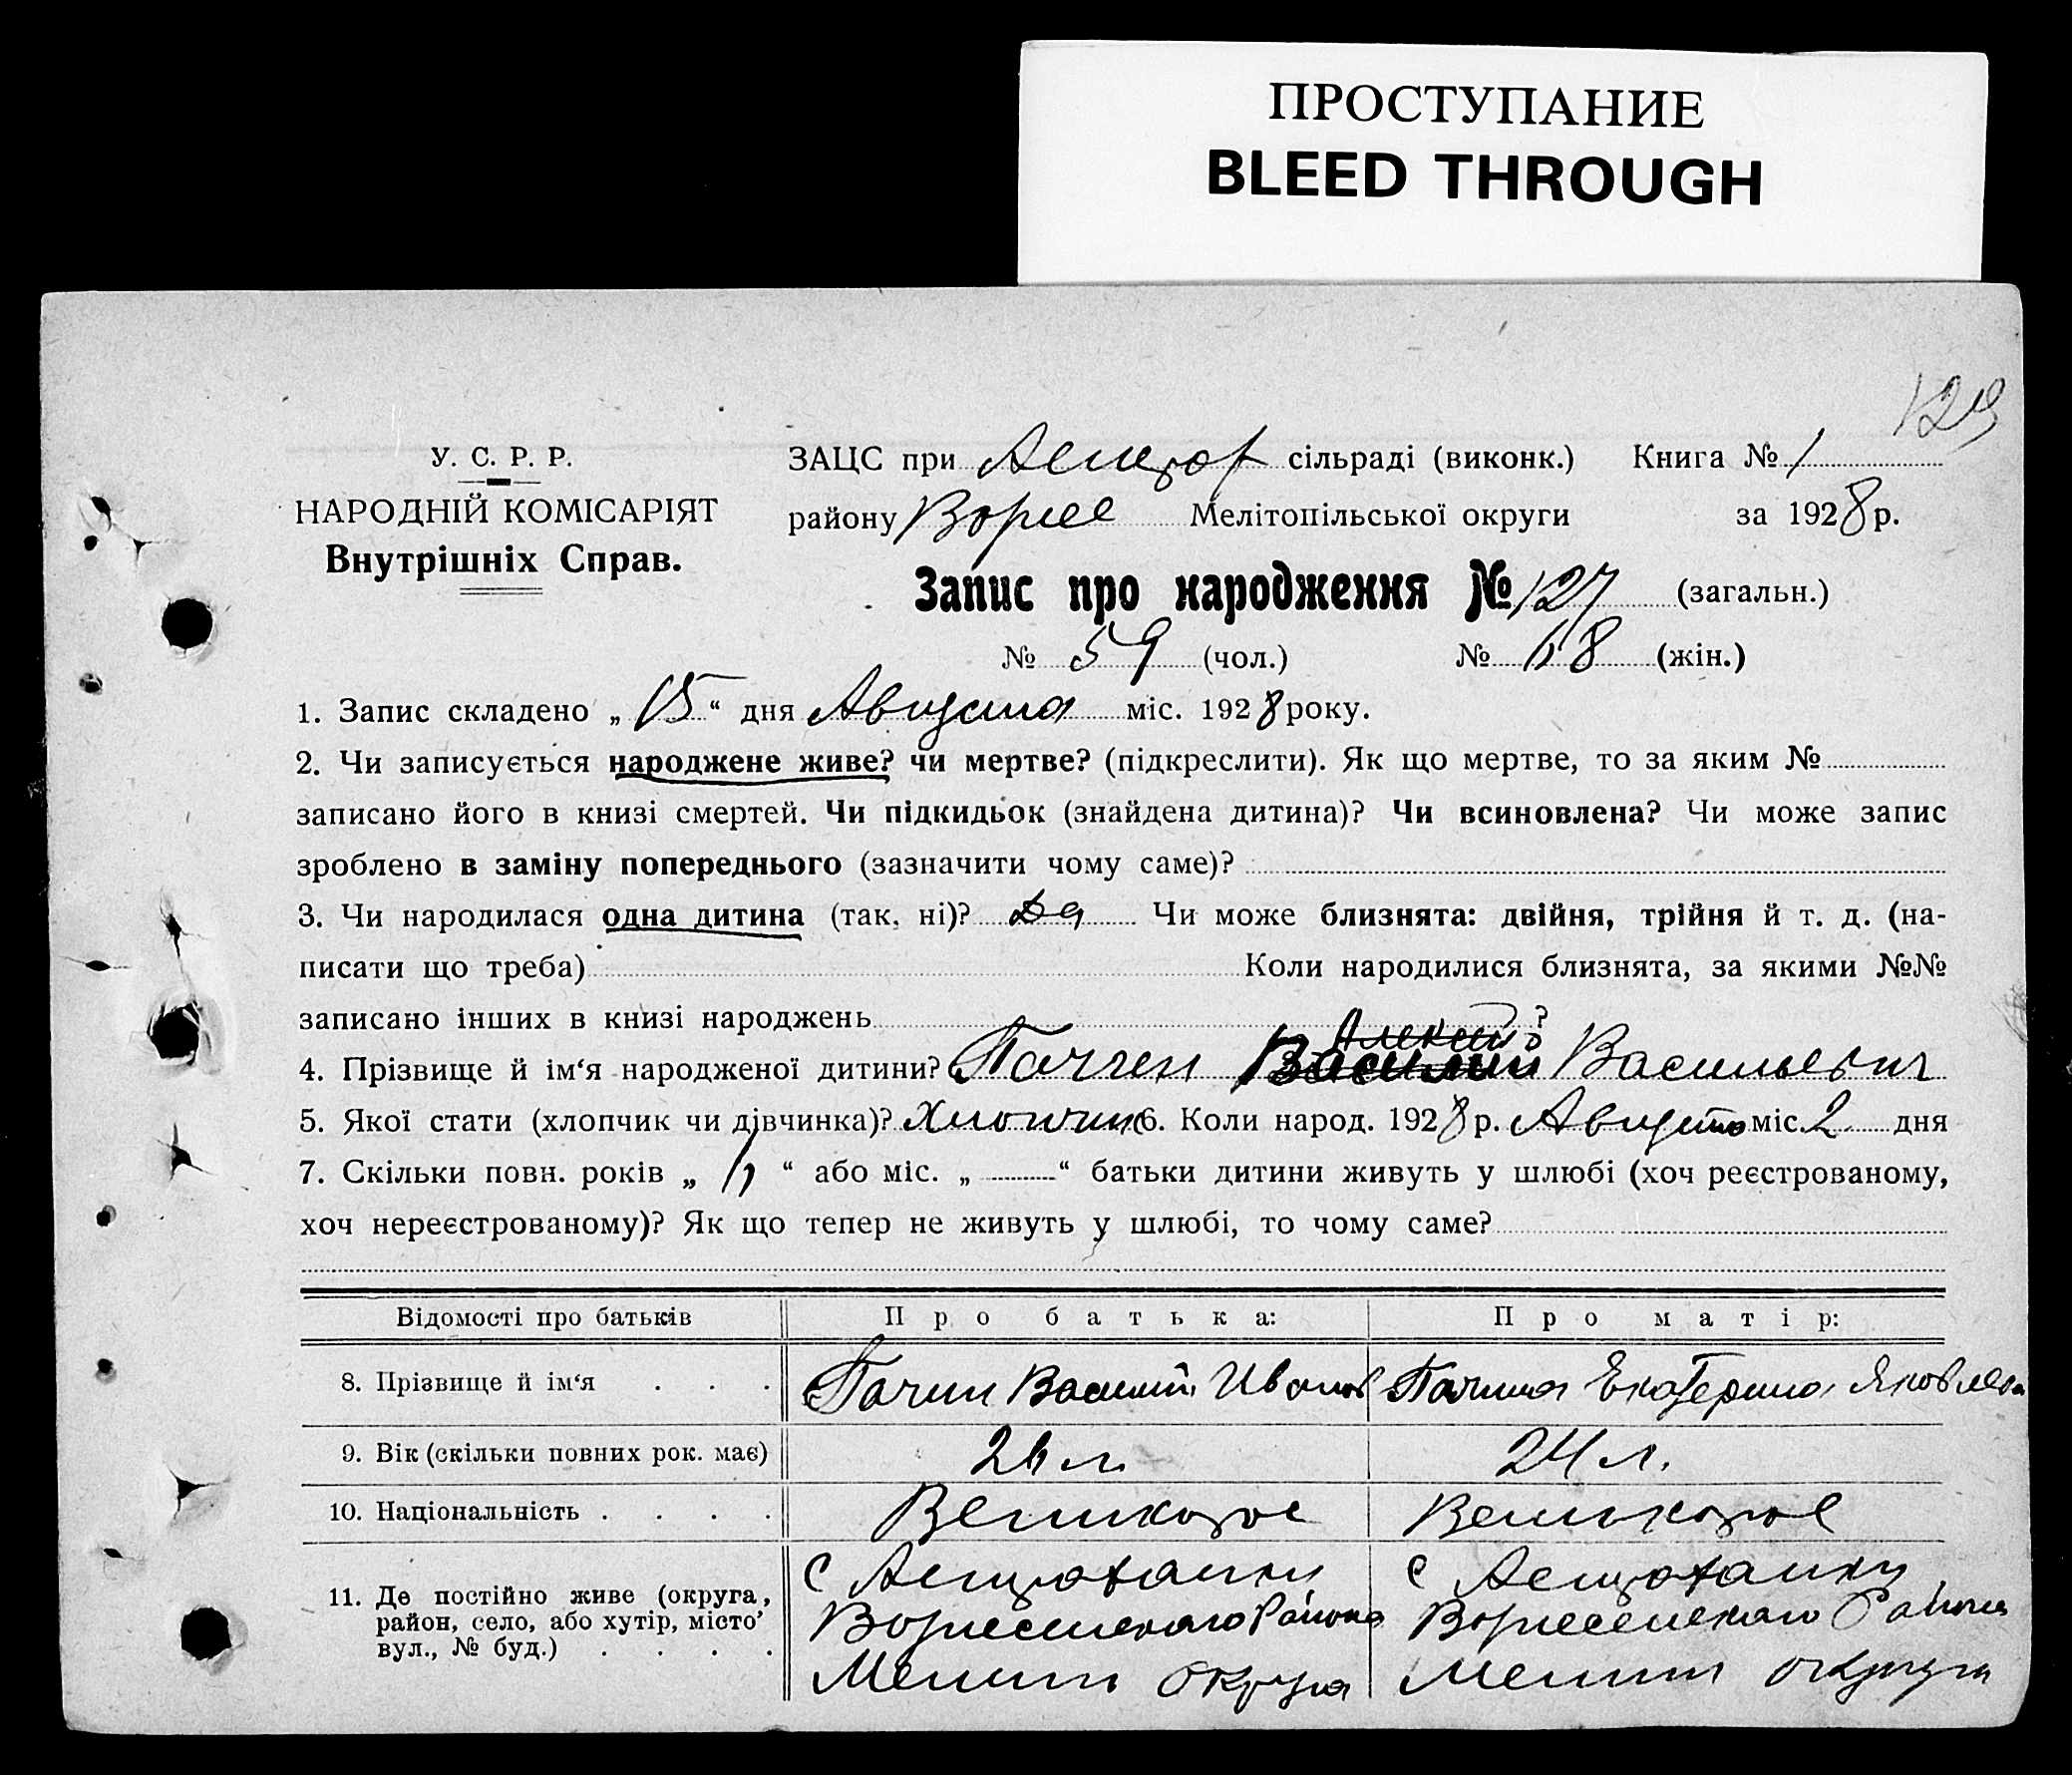 ПРОСТУПАНИЕ
BLEED THROUGH
129
У. С. Р. Р.
НАРОДНІЙ КОМІСАРІЯТ
Внутрішніх Справ.
ЗАЦС при Астрах сільраді (виконк.) Книга № 1
району Мелітопільської округи за 1928 р.
Запис про народження № 127 (загальн.)
№ 59 (чол.) № 68 (жін.)
1. Запис складено „ 15 “ дня Августа міс. 1928 року.
2. Чи записується народжене живе? чи мертве? (підкреслити). Як що мертве, то за яким №
записано його в книзі смертей. Чи підкидьок (знайдена дитина)? Чи всиновлена? Чи може запис
зроблено в заміну попереднього (зазначити чому саме)?
3. Чи народилася одна дитина (так, ні)? Да Чи може близнята: двійня, трійня й т. д. (на-
писати що треба) Коли народилися близнята, за якими №№
записано інших в книзі народжень ?
4. Прізвище й ім‘я народженої дитини? Василий Васильевич
5. Якої стати (хлопчик чи дівчинка)? Хлопчик 6. Коли народ. 1928 р. Августа міс. 2 дня
7. Скільки повн. років „ “ або міс. „ “ батьки дитини живуть у шлюбі (хоч реєстрованому,
хоч нереєстрованому)? Як що тепер не живуть у шлюбі, то чому саме?
Відомості про батьків Про батька: Про матір:
8. Прізвище й ім‘я . . . Пачин Василий Иванов Пачина Екатерина Яковлева
9. Вік (скільки повних рок. має) 26 л. 24 л.
10. Національність . . . . Великорос Великорос
11. Де постійно живе (округа,
район, село, або хутір, місто’
вул., № буд.) . . . .
с Астраханки
Района
Мелит округа
с Астраханки
Района
Мелит округа